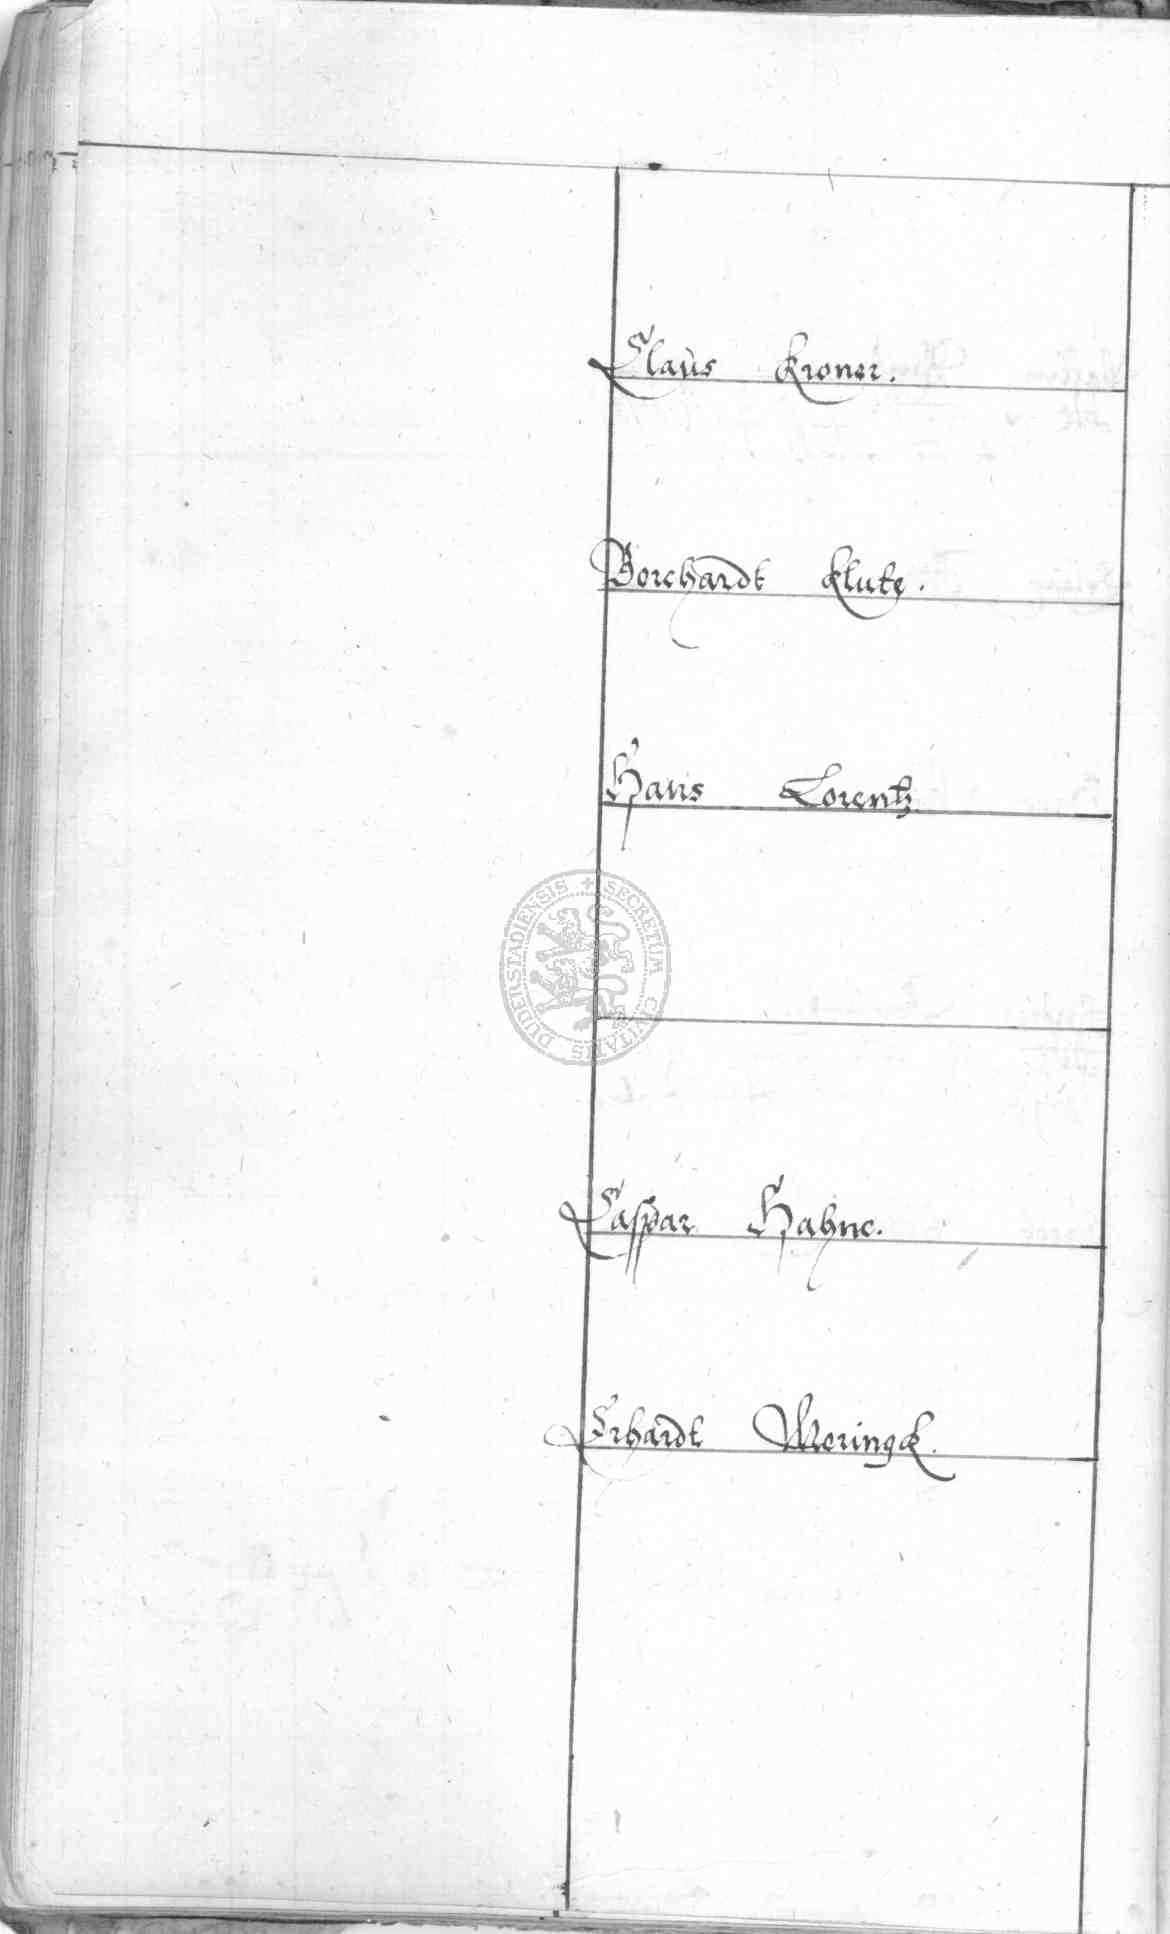 Claus Kroner.
Borchardt Klute.
Hans Lorentz.
SECRETUM CIVITATIS DUDERSTADIENSIS
Caspar Hahne.
Erhardt Weringck.